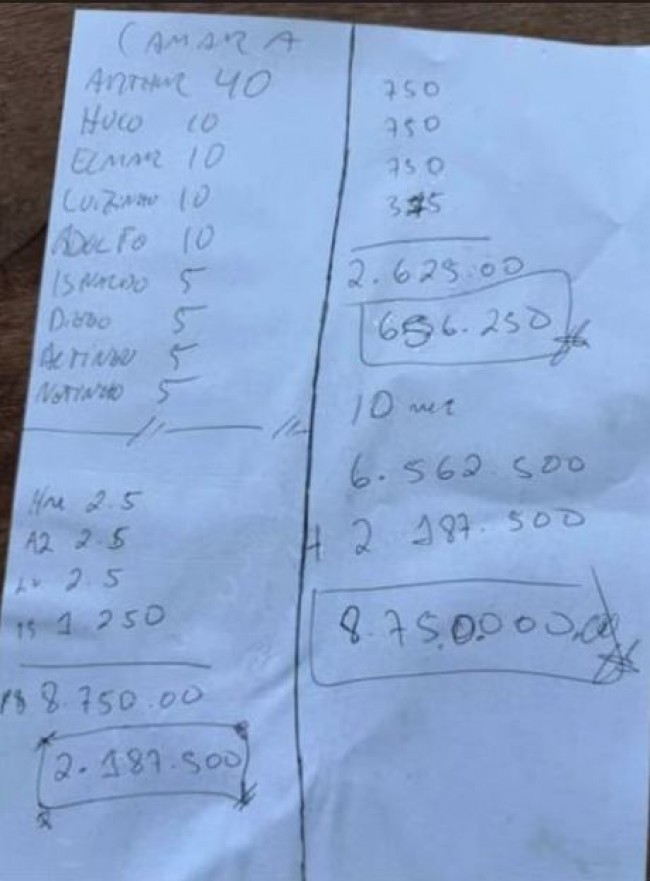 CAMARA
ARTHUR 40
HUGO 10
ELMAR 10
LUIZINHO 10
ADOLFO 10
ISNALDO 5
DIOGO 5
ALTINEU 5
NETINHO 5
2.5
A2 2.5
2.5
IS 1 250
R$ 8.750.00
2.187.500
750
750
750
375
2.625.00
656.250
10
6.562 500
+ 2 187.500
8.750.000,00